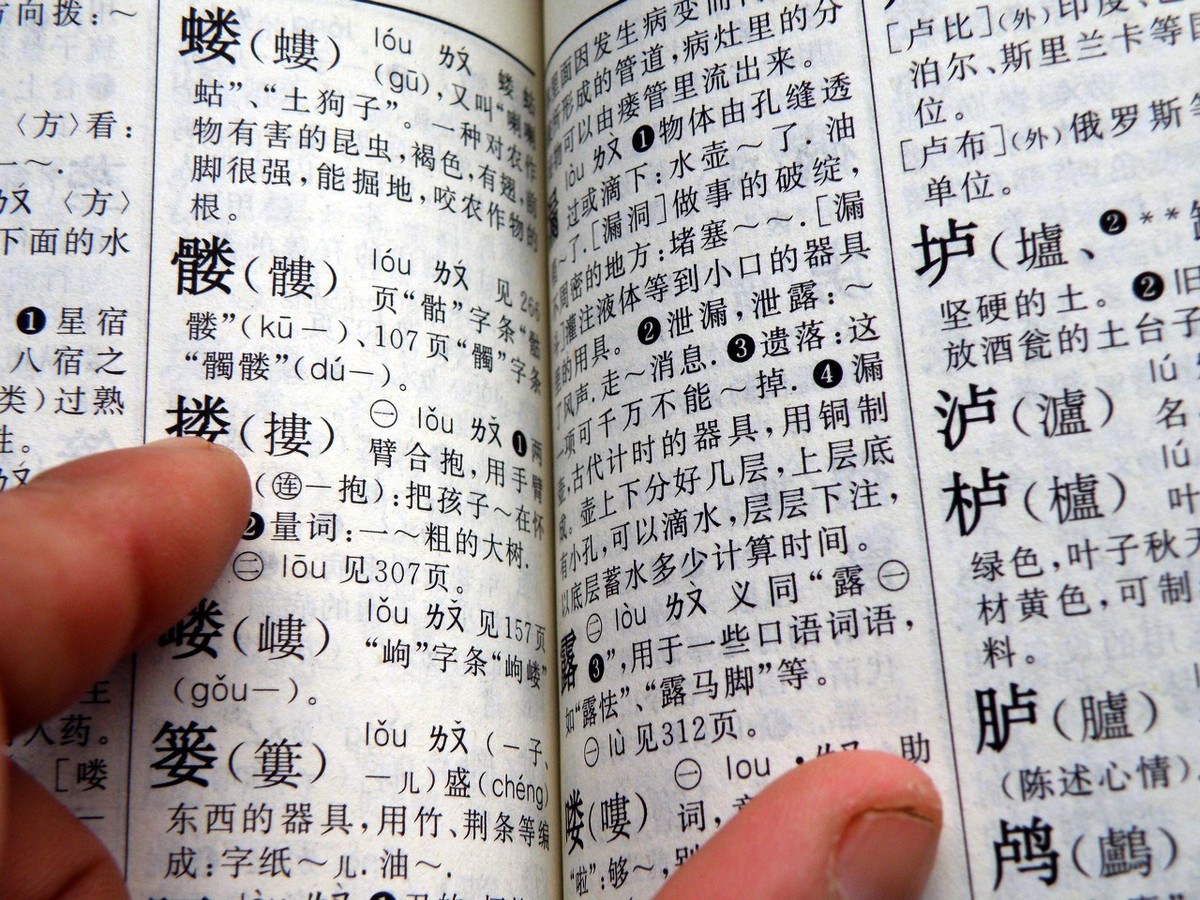 方向拨：～
〈方〉看：
一～.
ㄌㄡ 〈方〉
下面的水
❶星宿
八宿之
类）过熟
性。
入药。
［喽
蝼（螻） lóu ㄌㄡˊ 蝼蛄
（gū），又叫“喇喇
蛄”、“土狗子”。一种对农作
物有害的昆虫，褐色，有翅，前
脚很强，能掘地，咬农作物的
根。
髅（髏） lóu ㄌㄡˊ 见266
页“骷”字条“骷
髅”（kū—）、107页“髑”字条
“髑髅”（dú—）。
搂（摟） ㊀ lǒu ㄌㄡˇ ❶两
臂合抱，用手臂
（㊣连—抱）：把孩子～在怀
❷量词：一～粗的大树.
㊁ lōu 见307页。
嵝（嶁） lǒu ㄌㄡˇ 见157页
“岣”字条“岣嵝”
（gǒu—）。
篓（簍） lǒu ㄌㄡˇ （—子、
—儿）盛（chéng）
东西的器具，用竹、荆条等编
成：字纸～儿.油～.
里面因发生病变而
所形成的管道，病灶里的分
物可以由瘘管里流出来。
漏 lòu ㄌㄡˋ ❶物体由孔缝透
过或滴下：水壶～了.油
～了.［漏洞］做事的破绽，
不周密的地方：堵塞～～.［漏
灌注液体等到小口的器具
里的用具。❷泄漏，泄露：～
了风声.走～消息.❸遗落：这
一项可千万不能～掉.❹漏
壶，古代计时的器具，用铜制
成。壶上下分好几层，上层底
有小孔，可以滴水，层层下注，
以底层蓄水多少计算时间。
露 ㊁ lòu ㄌㄡˋ 义同“露㊀
❸”，用于一些口语词语，
如“露怯”、“露马脚”等。
㊀ lù 见312页。
喽（嘍） ㊀ lou ·ㄌㄡ 助
词，
“啦”：够～，别
［卢比］（外）印度、
泊尔、斯里兰卡等
位。
［卢布］（外）俄罗斯
单位。
垆（壚、❷＊＊
坚硬的土。❷旧
放酒瓮的土台子
泸（瀘） lú
名
栌（櫨） lú
叶
绿色，叶子秋天
材黄色，可制
料。
胪（臚）
（陈述心情）
鸬（鸕）